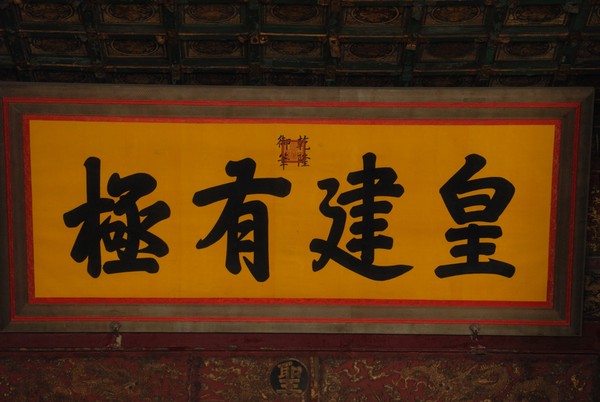 皇建有極
乾隆
御筆
聖